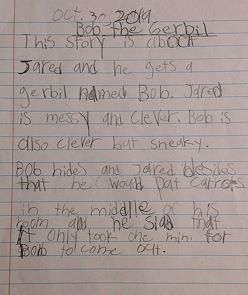 Oct. 30, 2019
Bob the Gerbil
This story is about
Jared and he gets a
gerbil named Bob. Jared
is messy and clever. Bob is
also clever but sneaky.
Bob hides and Jared desides
that he would pat carrots
in the middle of his
room and he siad that
it only took one min. for
Bob to come out.